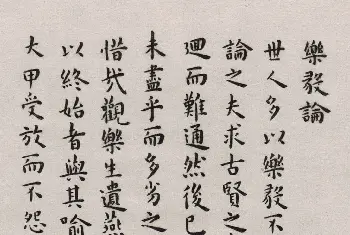 樂毅論
世人多以樂毅不
論之夫求古賢之
迴而難通然後已
未盡乎而多劣之
惜哉觀樂生遺燕
以終始者與其喻
大甲受放而不怨